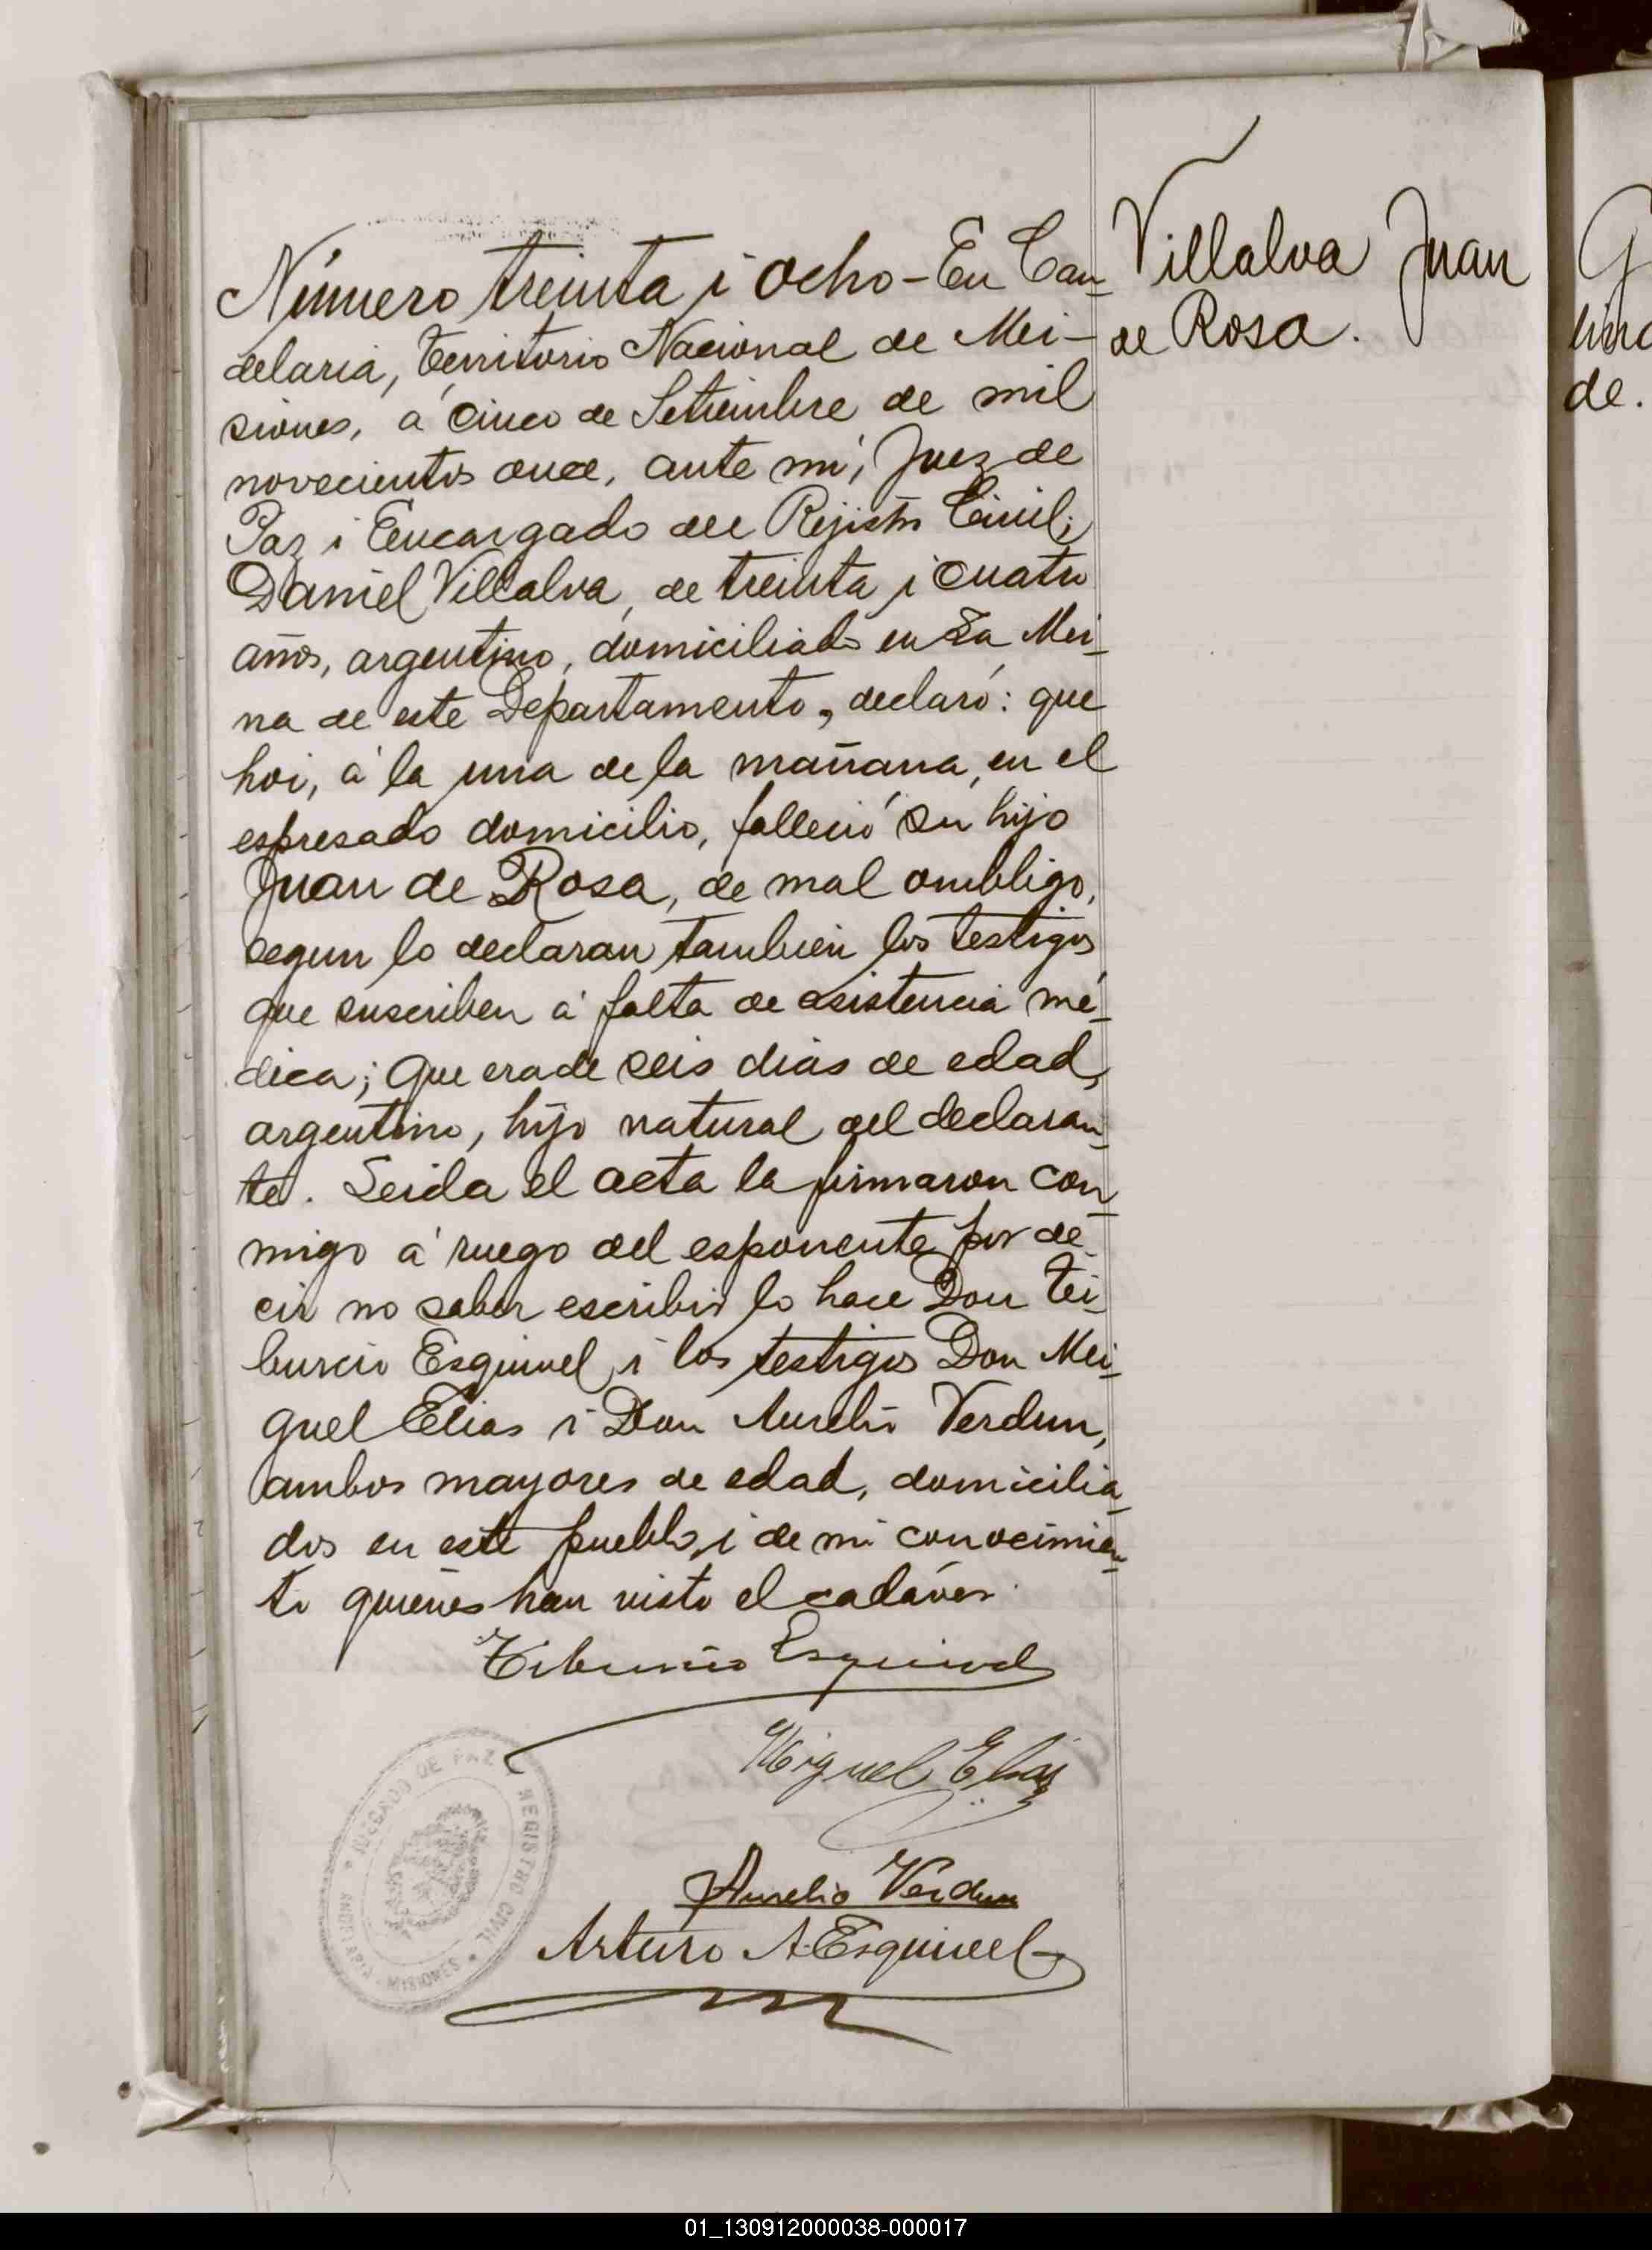 Villalva Juan
de Rosa.
Número treinta i ocho - En Can-
delaria, Territorio Nacional de Mi-
siones, á cinco de Setiembre de mil
novecientos once, ante mi, Juez de
Paz i Encargado del Rejistro Civil;
Daniel Villalva, de treinta i cuatro
años, argentino, domiciliado en La Mi-
na de este Departamento, declaró: que
hoi, á la una de la mañana, en el
espresado domicilio, falleció su hijo
Juan de Rosa, de mal ombligo,
segun lo declaran tambien los testigos
que suscriben á falta de asistencia mé-
dica; que era de seis dias de edad,
argentino, hijo natural del declaran-
te. Leida el acta la firmaron con-
migo á ruego del esponente por de-
cir no saber escribir lo hace Don Ti-
burcio Esquivel i los testigos Don Mi-
guel Elias i Don Aurelio Verdun,
ambos mayores de edad, domicilia-
dos en este pueblo, i de mi conocimien-
to quienes han visto el cadáver.
Tiburcio Esquivel
Miguel Elias
Aurelio Verdun
Arturo A. Esquivel
JUZGADO DE PAZ Y REGISTRO CIVIL
CANDELARIA - MISIONES
G
lino
de.
01_130912000038-000017